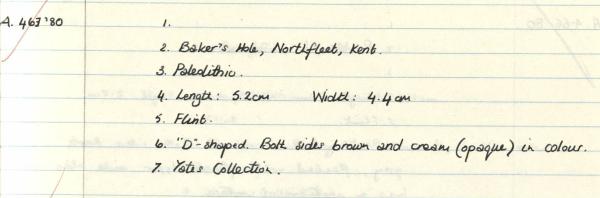 A. 463'80
1.
2. Baker's Hole, Northfleet, Kent.
3. Paleolithic.
4. Length: 5.2cm Width: 4.4cm
5. Flint.
6. "D"-shaped. Both sides brown and cream (opaque) in colour.
7. Yates Collection.